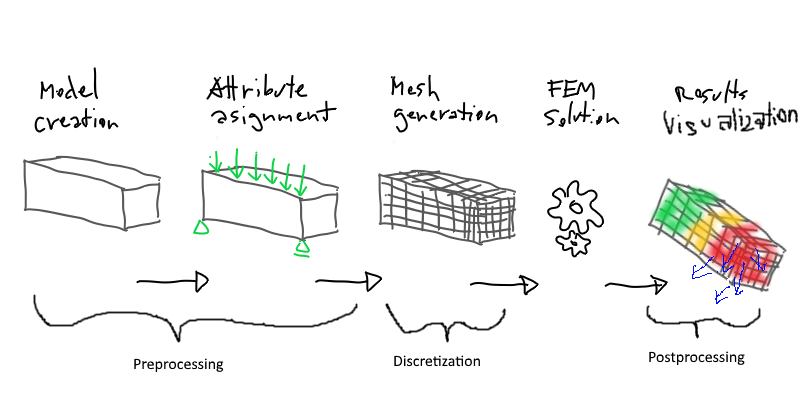 Model
creation
Attribute
asignment
Mesh
generation
FEM
solution
Results
Visualization
Preprocessing
Discretization
Postprocessing